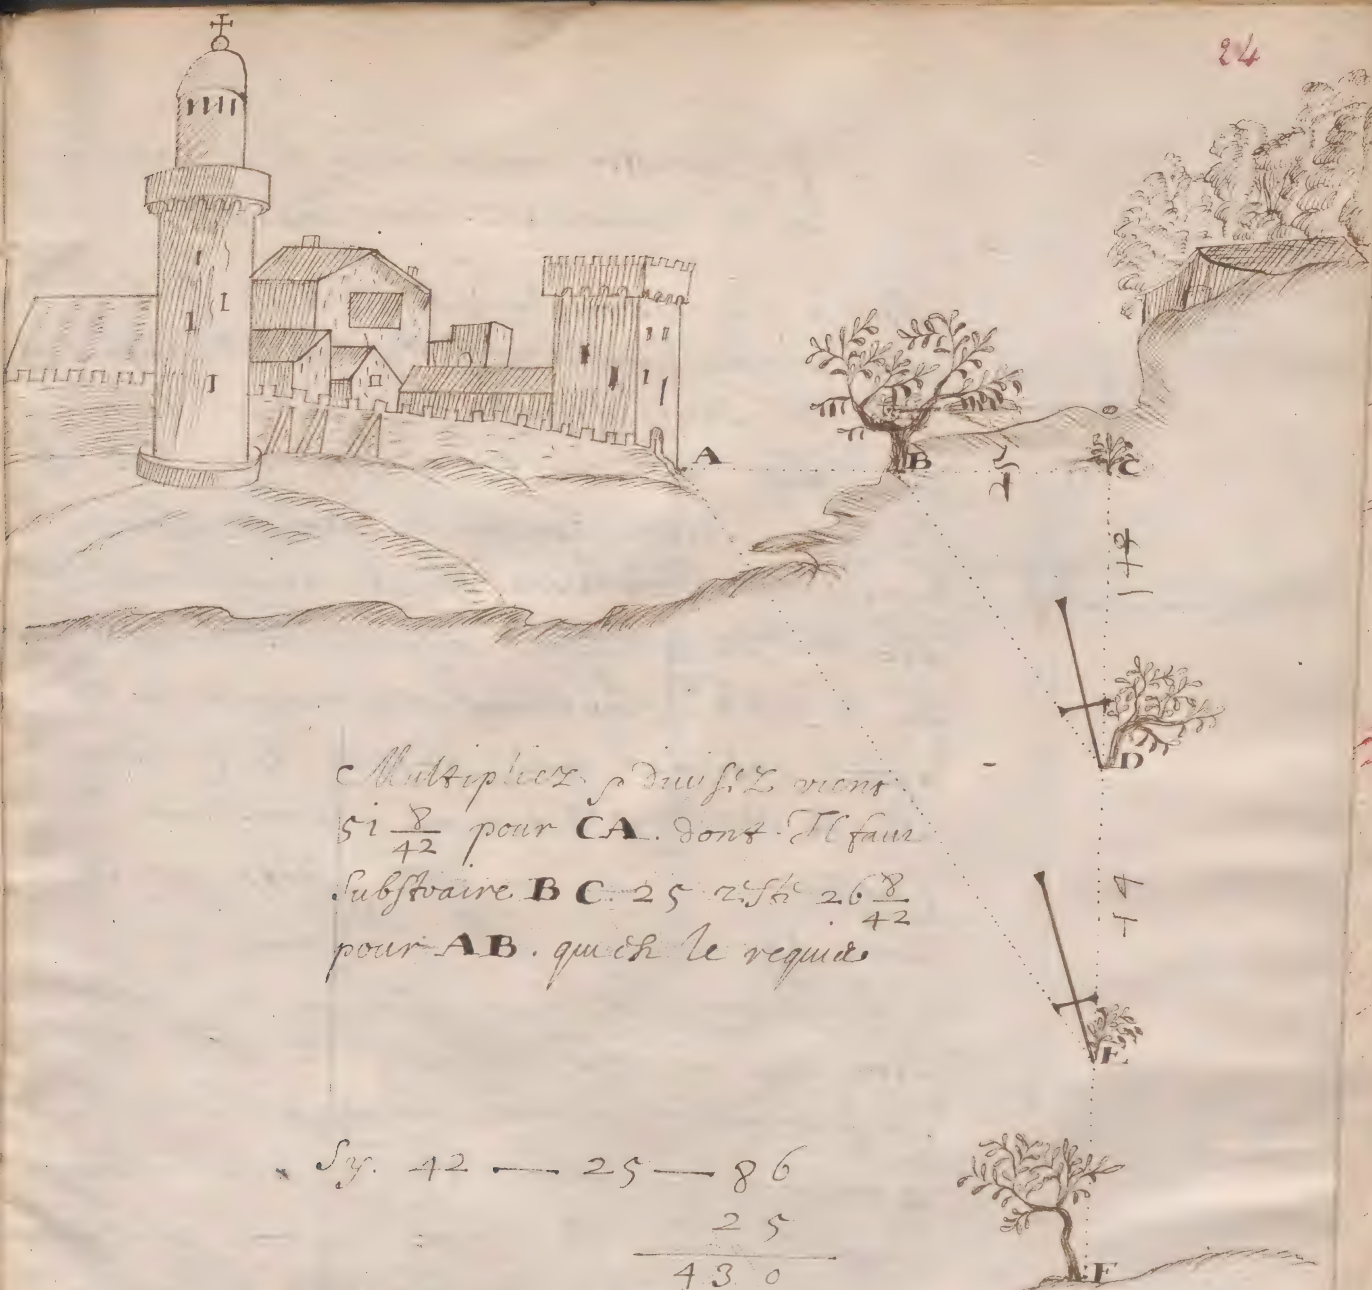 24
A B 25 C
42
D
44
E
Multipliez & divisez vient
51 8/42 pour CA. dont Il faut
Substraire BC 25 reste 26 8/42
pour AB. qui est le requis
Sy. 42 — 25 — 86
25
430
F